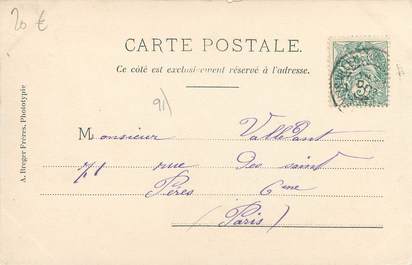 20 €
CARTE POSTALE.
Ce côté est exclusivement réservé à l'adresse.
91)
Monsieur Vallant
71 rue Des saint
Pères 6eme
(Paris)
A. Breger Frères, Phototypie